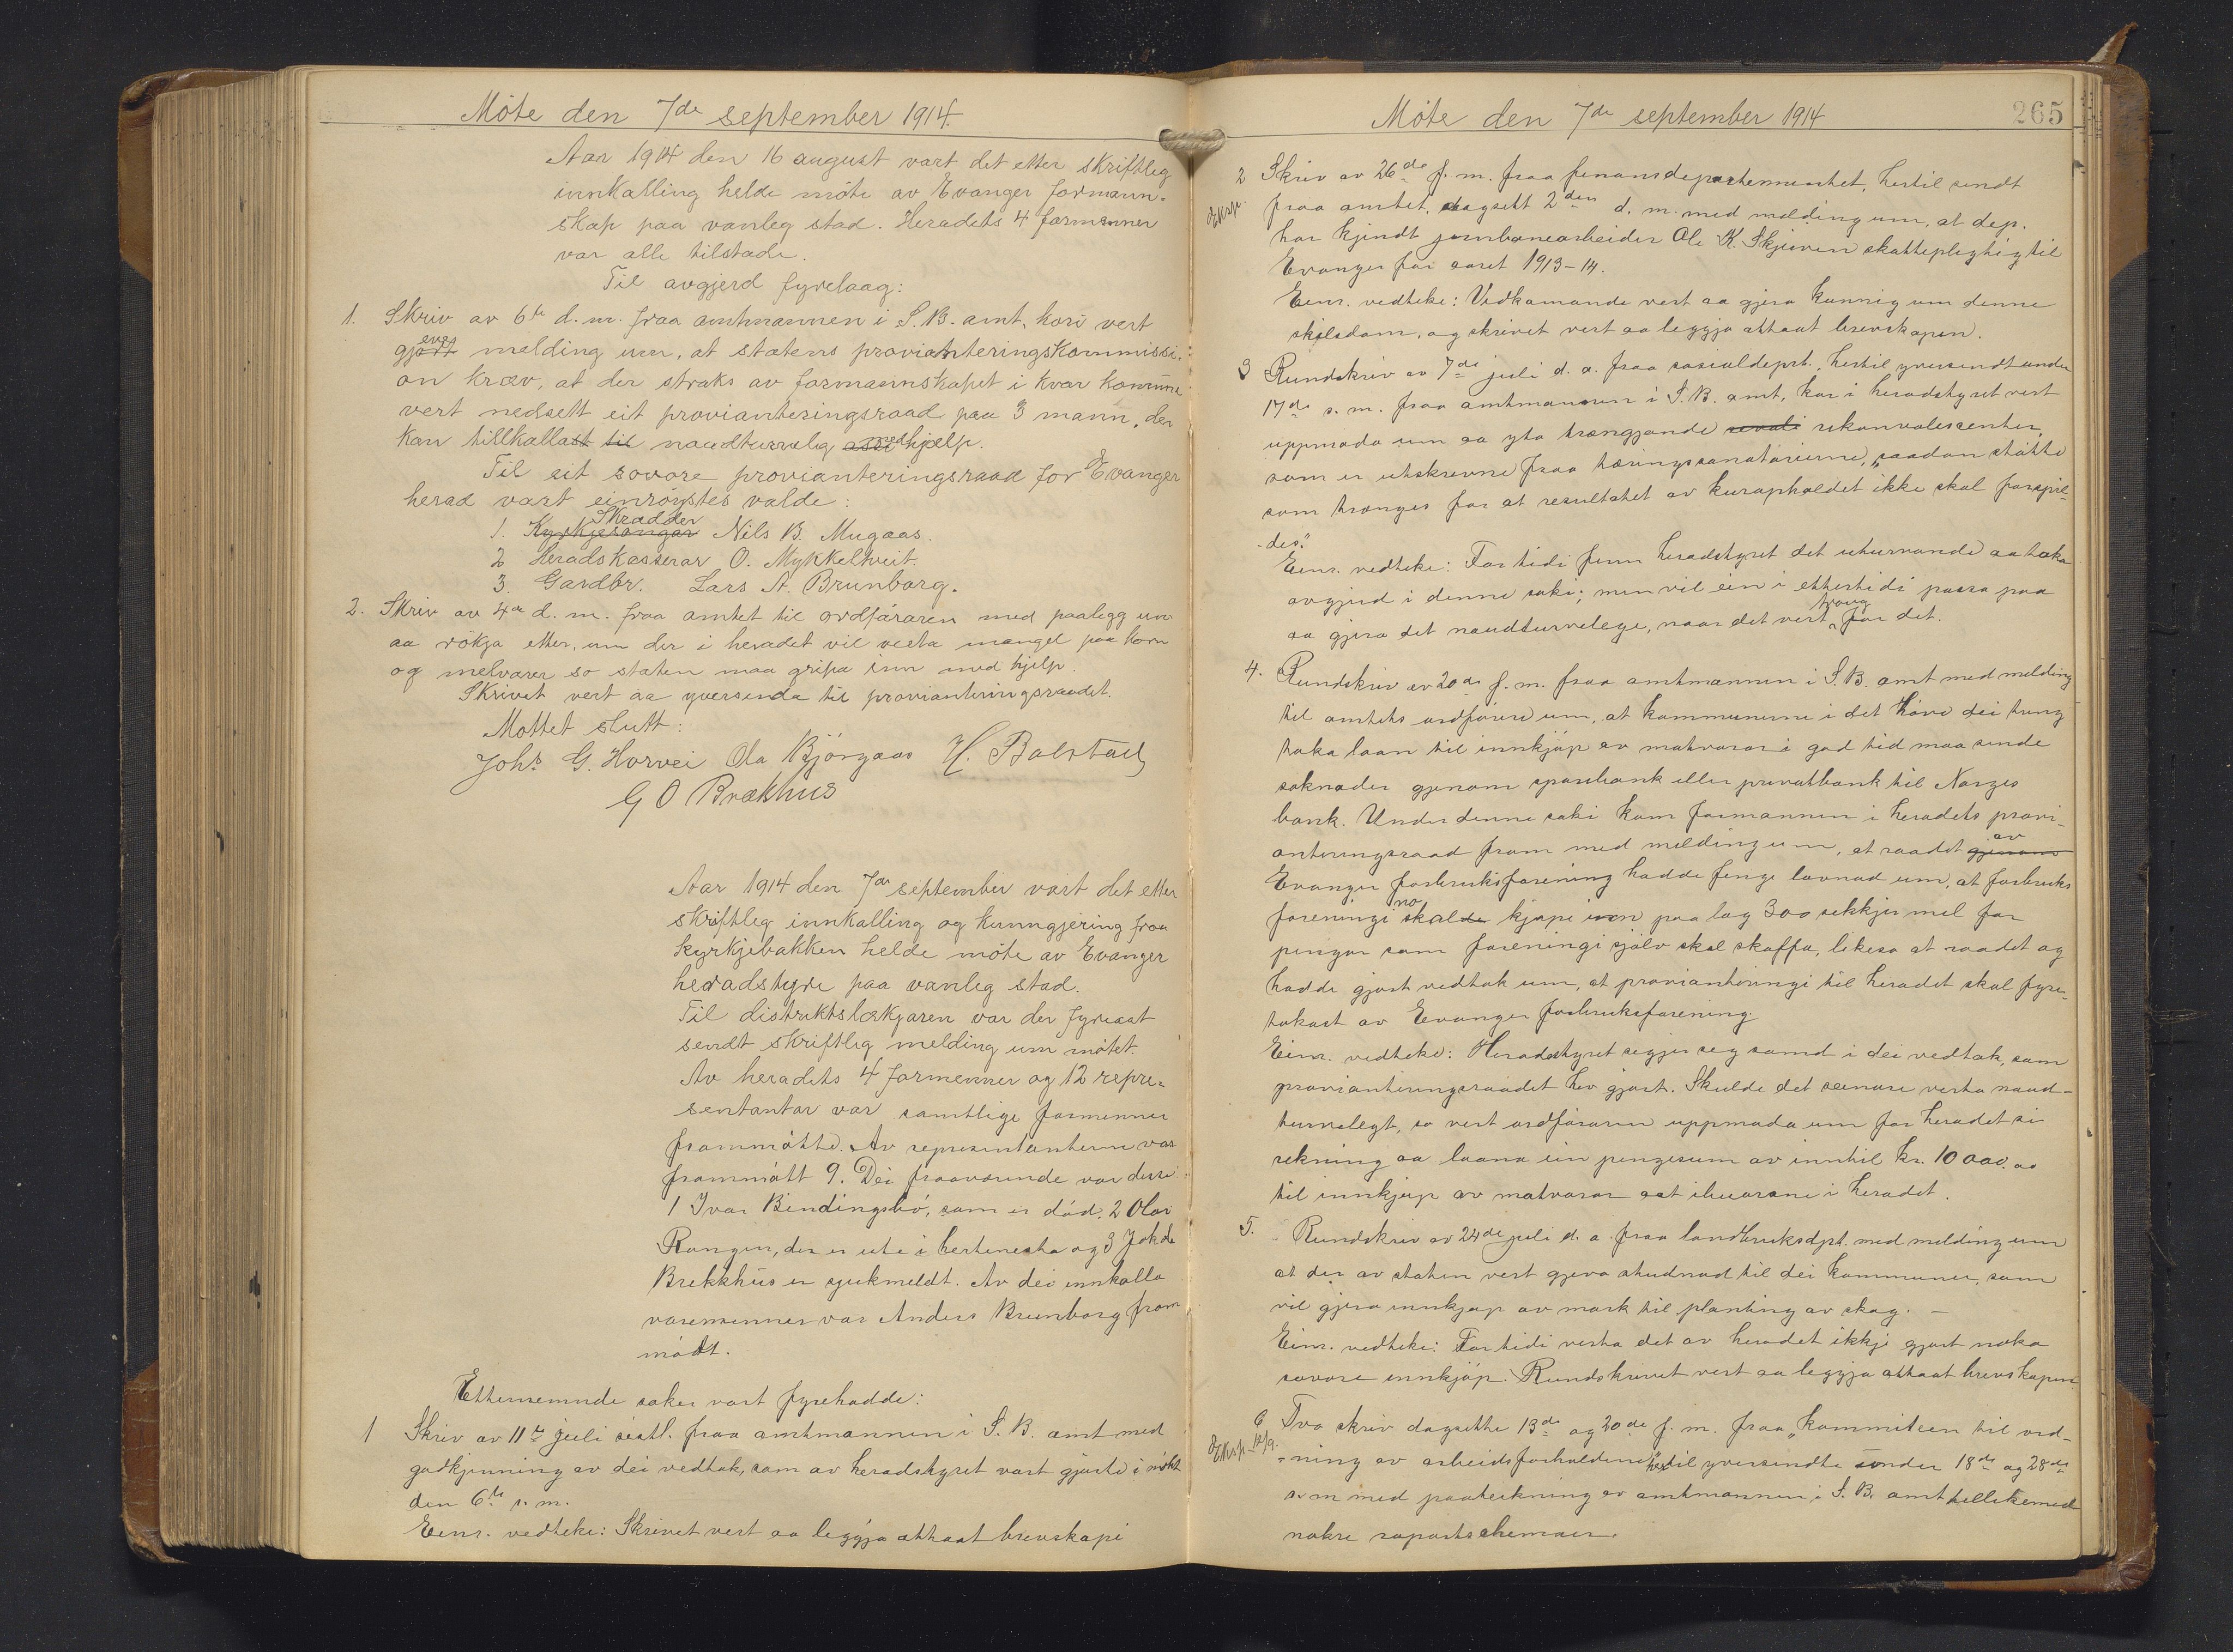 Möte den 7de september 1914.
Aar 1914 den 16 august vart det etter skriftleg
innkalling helde möte av Evanger formann-
skap paa vanleg stad. Heradets 4 formenner
var alle tilstade.
Til avgjerd fyrelaag:
1. Skriv av 6te d. m. fraa amtmannen i S. B. amt, kori vert
gjeve melding um, at statens provianteringskommissi-
on kræv, at der straks av formannskapet i kvar komune
vert nedsett eit provianteringsraad paa 3 mann, der
kan tillkallast til naudturvaleg med hjelp.
Til eit sovore provianteringsraad for Evanger
herad vart einröystes valde:
1. Kyrkjesongar Skrædder Nils B. Mugaas.
2 Heradskasserar O. Mykkeltveit.
3. Gardbr. Lars A. Brunborg.
2. Skriv av 4de d. m. fraa amtet til ordföraren med paalegg um
aa rökja etter, um der i heradet vil verta mangel paa korn
og melvarer so staten maa gripa inn med hjelp.
Skrivet vert aa yversenda til provianteringsraadet.
Mottet slutt:
Johs G. Horvei Ola Bjórgaas H. Bolstad
G O Brækhus
Aar 1914 den 7de september vart det etter
skriftleg innkalling og kunngjering fraa
kyrkjebakken helde möte av Evanger
heradstyre paa vanleg stad.
Til distriktslækjaren var der fyreaat
sendt skriftleg melding um mötet.
Av heradets 4 formenner og 12 repre-
sentantar var samtlige formenner
frammötte. Av representantern var
frammött 9. Dei fraaverande var desse:
1 Ivar Bendingsbö, som er död. 2 Olav
Rongen, der er ute i herteneste og 3 Jak de
Brekkhus er sjukmeldt. Av dei innkalla
varemenner var Anders Brunborg fram
mött.
Etternemnde saker vart fyrehadde:
1 Skriv av 11te juli sistl. fraa amtmannen i S. B. amt med
godkjenning av dei vedtak, som av heradstyret vart gjorde i mötet
den 6te s. m.
Eins. vedteke: Skrivet vert aa leggja attaat brevskapi
Möte den 7de september 1914
265
2 Skriv av 26de f. m. fraa finansdepartementet, hertil sendt
Eksp. fraa amtet, dagsett 2den d. m. med melding um, at dep.
har kjendt jernbanearbeider Ole K. Skjerven skattepligtig til
Evanger for aaret 1913-14.
Eins. vedteke: Vedkomande vert aa gjera kunnig um denne
skilsdom, og skrivet vert aa leggja attaat brevskapen.
3 Rundskriv av 7de juli d. a. fraa sosialdeprt., hertil yversendt under
17de s. m. fraa amtmannen i S. B. amt, kor i heradstyret vert
uppmoda um aa yta trængjande revali rekonvalescenter,
som er utskrevne fraa tæringssanatorierne, "saadan støtte
som trænges for at resultatet av kuropholdet ikke skal forspil-
des".
Eins. vedteke: For tidi finn heradstyret det uturvande aa taka
avgjerd i denne saki; men vil ein i ettertidi passa paa
aa gjera det naudturvelege, naar det vert trong for det.
4. Rundskriv av 20de f. m. fraa amtmannen i S. B. amt med melding
til amtets ordförere um, at kommunerne i det höve dei trung
taka laan til innkjöp av matvaror i god tid maa sende
søknader gjenom sparebank eller privatbank til Norges
bank. Under denne saki kom formannen i heradets provi-
anteringsraad fram med melding um, at raadet gjenom av
Evanger forbruksforening hadde fenge lovnad um, at forbruks
foreningi no skal kjøpe inn paa lag 300 sekkjer mel for
pengar som foreningi sjölv skal skaffa, likeso at raadet og
hadde gjort vedtak um, at provianteringi til heradet skal fyre-
takast av Evanger forbruksforening.
Eins. vedteke: Heradstyret segjer seg samd i dei vedtak, som
provianteringsraadet hev gjort. Skulde det seinare verta naud-
turvelegt, so vert ordföraren uppmoda um for heradet si
rekning aa laana ein pengesum av inntil kr. 10 000.00
til innkjøp av matvaror aat ibuarane i heradet.
5. Rundskriv av 24de juli d. a. fraa landbruksdpt. med melding um
at der av staten vert gjeva studnad til dei kommuner, som
vil gjera innkjøp av mark til planting av skog. —
Eins. vedteke: For tidi verta det av heradet ikkje gjort noko
sovore innkjöp. Rundskrivet vert aa leggja attaat brevskapen.
6 Tvo skriv dagsette 13de og 20de f. m. fraa "kommiteen til ord-
Eksp. 12/9. -ning av arbeidsforholdene" hertil yversendte under 18de og 28de
s. m med paateikning av amtmannen i S. B. amt tillikemed
nokre raportschemaer.